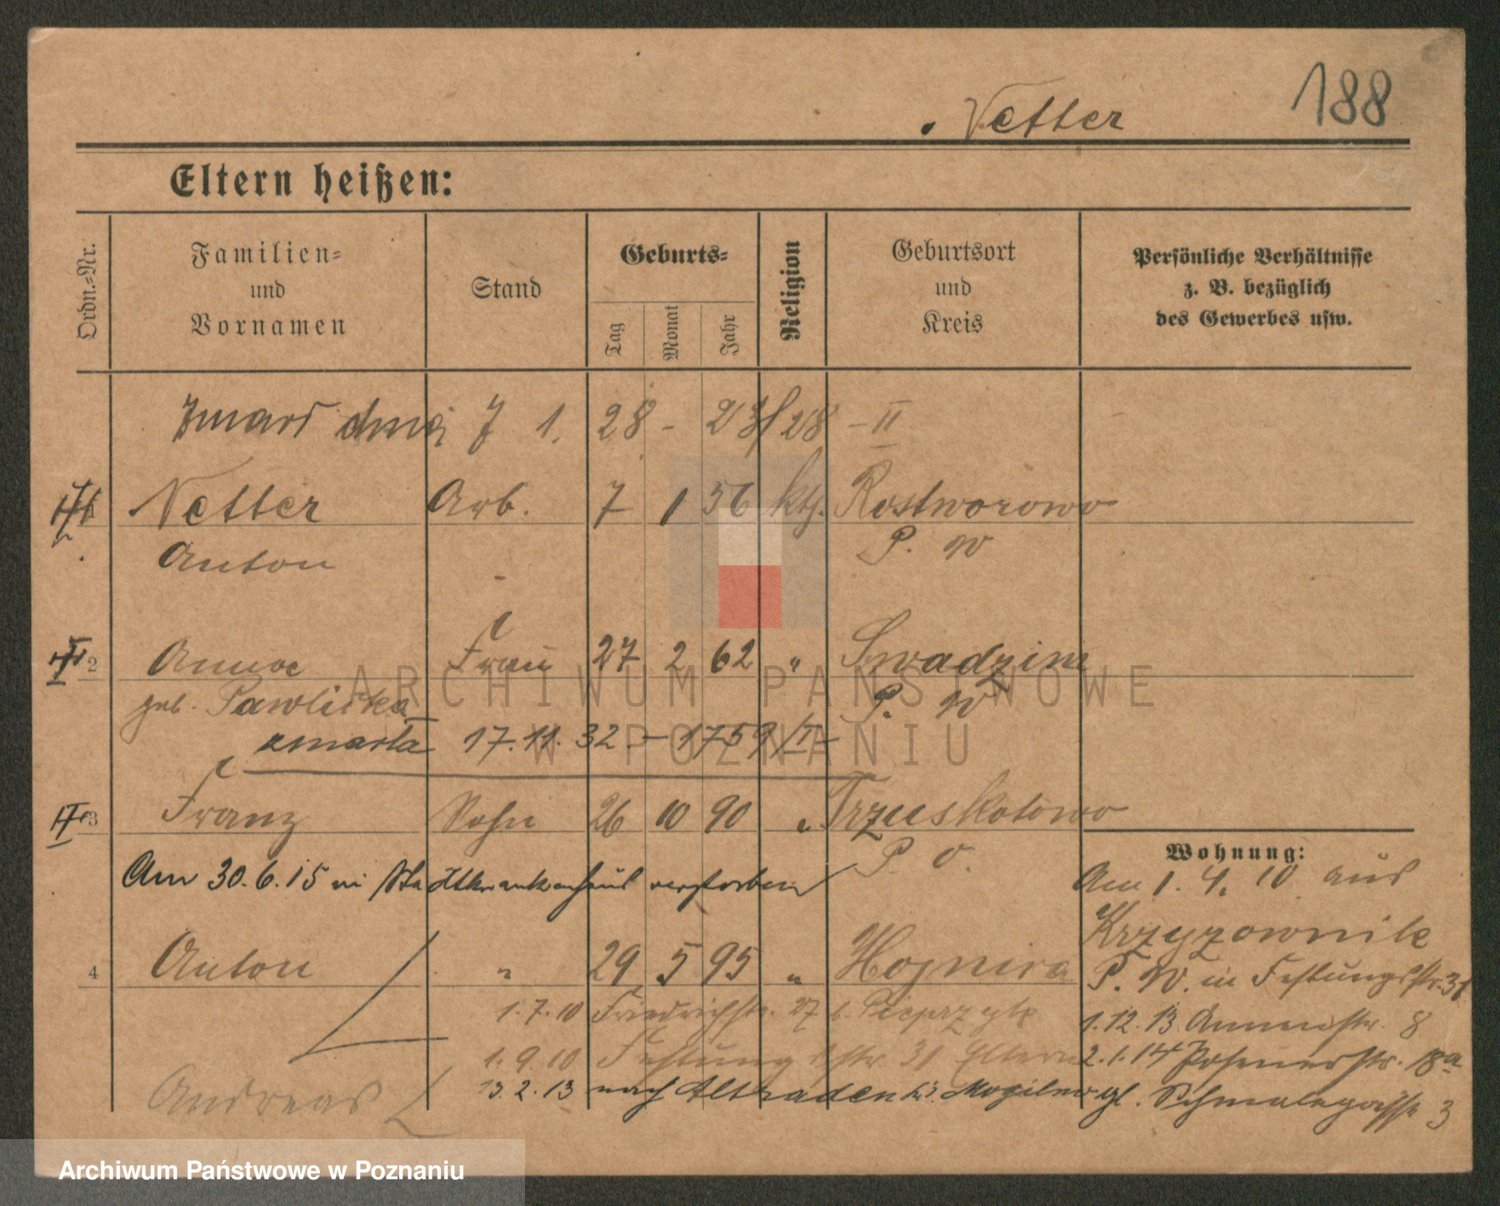 Vetter 188
Eltern heißen:
Ordn.-Nr.
Familien-
und
Vornamen
Stand
Geburts-
Tag
Monat
Jahr
Religion
Geburtsort
und
Kreis
Persönliche Verhältnisse
z. B. bezüglich
des Gewerbes usw.
zmarł dnia 1. 28 - 23/28 - II
Vetter Arb. 7 1 56 kth. Rostworowo
Anton P. W
2 Anna Frau 27 2 62 " Swadzim
geb. Pawlicka P. W
zmarła 17.11.32 - 1759/II -
3 Franz Sohn 26 10 90 " Trzuskotowo
P. O.
Am 30.6.15 im Stadtkrankenhaus verstorben
4 Anton " 29 5 95 "
1.7.10 Friedrichstr. 27 b. Pieprzyk
1.9.10 Festungsstr. 31 Eltern
Andreas 13.2.13 nach Altraden Kr. Mogilno
Wohnung:
Am 1. 4. 10 aus
Krzyzownik
P. W. in Festungsstr. 31
1.12.13 Annenstr. 8
2.1.14 Posenerstr. 18a
gl. Schmalegasse 3
ARCHIWUM PAŃSTWOWE
W POZNANIU
Archiwum Państwowe w Poznaniu